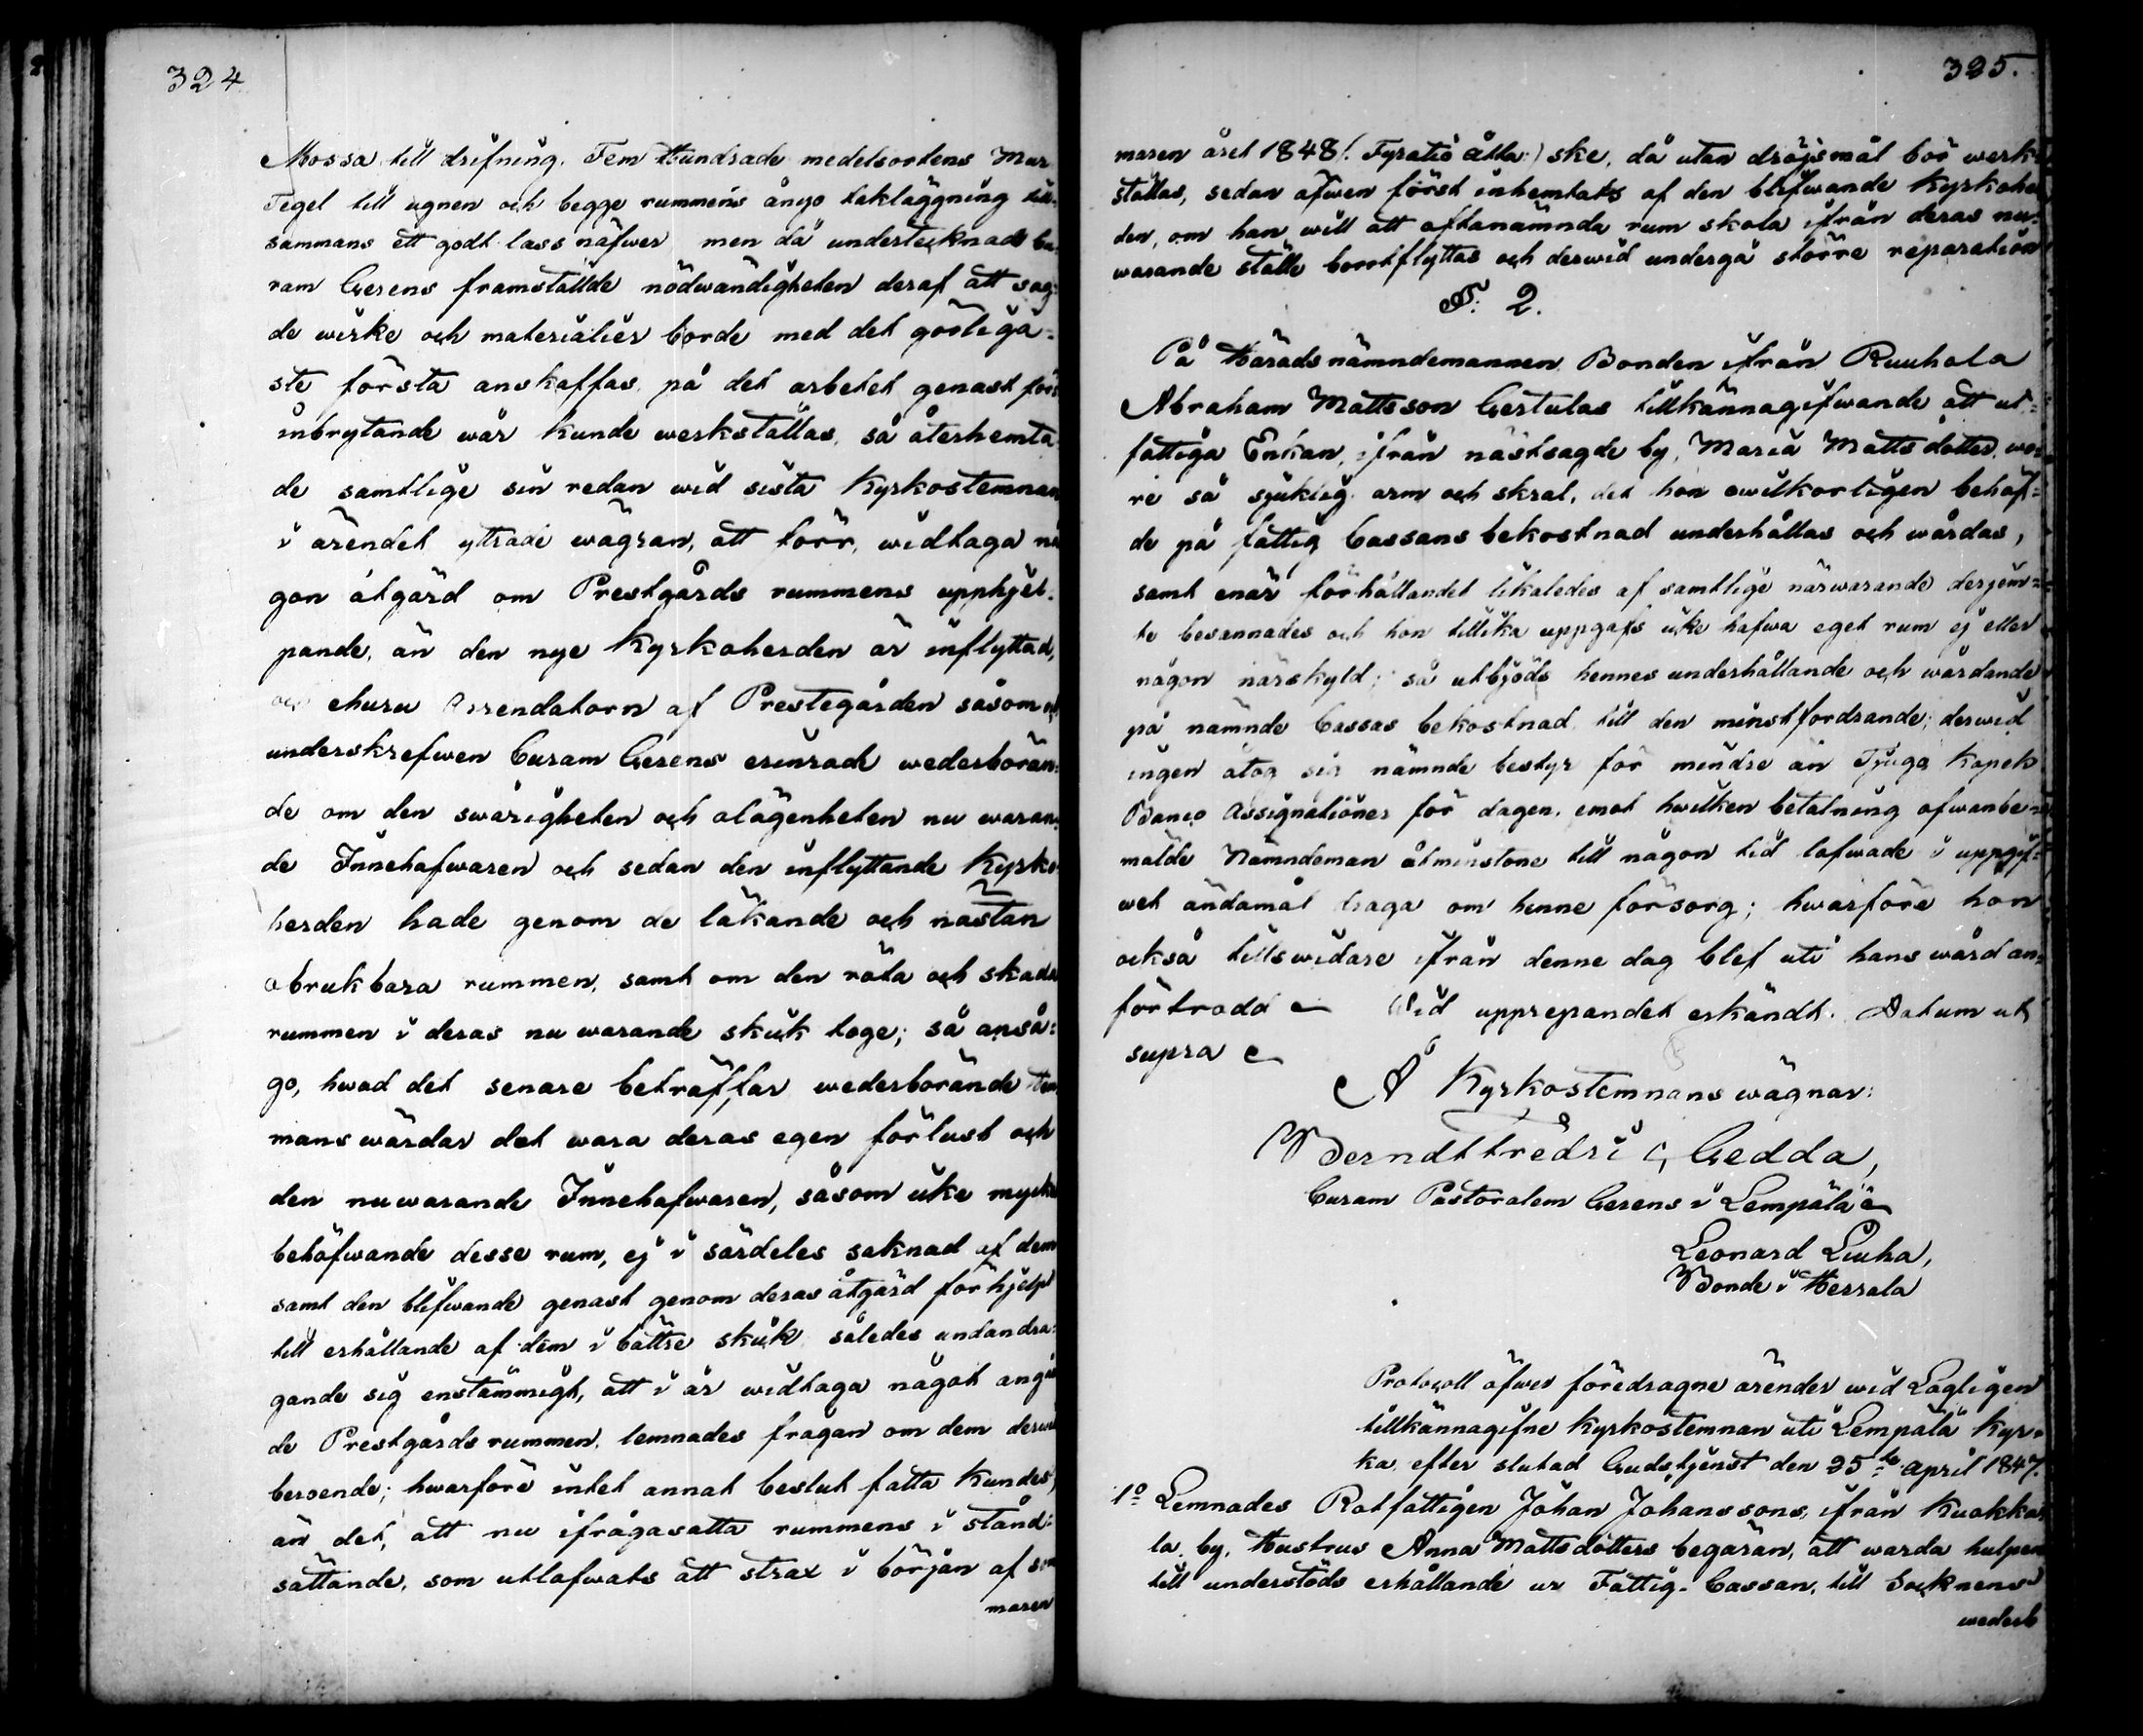 324
Mossa till drifning. Fem Hundrade medelsortens Mur
Tegel till ugnen och begge rummens ångo takläggning till-
sammans ett godt lass näfwer men då undertecknade Cu-
ram Gerens framställde nödwändigheten deraf att sag-
de wirke och materialier borde med det görliga-
ste första anskaffas, på det arbetet genast för
inbrytande wår kunde werkställas, så återhemta
de samtlige sin redan wid sista Kyrkostemnan
i ärendet yttrade wägran, att förr, widtaga nå
gon åtgärd om Prestgårds rummens upphjel-
pande, än den nye Kyrkoherden är inflyttad,
och ehuru Arrendatorn af Prestegården såsom
underskrefwen Curam Gerens erinrade wederböran-
de om den swårigheten och olägenheten nu waran-
de Innehafwaren och sedan den inflyttande Kyrko
herden hade genom de läkande och nästan
obrukbara rummen, samt om den röta och skada
rummen i deras nu warande skick toge; så anså-
go, hwad det senare beträffar wederbörande Hem
mans wärdar det wara deras egen förlust och
den nuwarande Innehafwaren, såsom icke mycke
behöfwande desse rum, ej i särdeles saknad af dem
samt den blifwande genast genom deras åtgärd förhjelpt
till erhållande af dem i bättre skick således undandra-
gande sig enstämmigt, att i år widtaga något angåen
de Prestgårds rummen, lemnades frågan om dem derwid
beroende; hwarföre intet annat beslut fatta kundes
än det, att nu ifrågasatta rummens i stånd-
sättande, som utlafwats att strax i början af som
maren
325.
maren året 1848 /: Fyratio åtta:/ ske, då utan dröjsmål bör werk-
ställas, sedan äfwen först inhemtats af den blifwande Kyrkoher
den, om han will att oftanämnda rum skola ifrån deras nu-
warande ställe bortflyttas och derwid undergå större reparation
§. 2.
På Häradsnämndemannen Bonden ifrån Ruuhola
Abraham Mattsson Gertulas tillkännagifwande att ut-
fattiga Enkan, ifrån nästsagde by, Maria Mattsdotter, wo-
re så sjuklig arm och skral, det hon owilkorligen behöf-
de på fattig Cassans bekostnad underhållas och wårdas,
samt enär förhållandet likaledes af samtlige närwarande derjem-
te besannades och hon tillika uppgafs icke hafwa eget rum ej eller
någon närskyld; så utbjöds hennes underhållande och wårdande
på nämnde Cassas bekostnad till den minstfordrande; derwid
ingen åtog sig nämnde bestyr för mindre än Tjuga Kopek
Banco Assignationer för dagen, emot hwilken betalning ofwanbe-
mälde Nämndeman åtminstone till någon tid lofwade i uppgif-
wet ändamål draga om henne försorg; hwarföre hon
också tillswidare ifrån denne dag blef uti hans wård an-
förtrodd Wid upprepandet erkändt. Datum ut
supra
Å Kyrkostemnans wägnar:
Berndt Fredric Gedda,
Curam Pastoralem Gerens i Lempälä
Leonard Liuha,
Bonde i Herrala
Protocoll öfwer föredragne ärender wid Lagligen
tillkännagifne Kyrkostemnan uti Lempälä Kyr-
ka efter slutad Gudstjenst den 25te April 1847.
1o Lemnades Rotfattigen Johan Johanssons, ifrån Kuokka-
la by, Hustrus Anna Mattsdotters begäran, att warda hulpen
till understöds erhållande ur Fattig-Cassan, till Socknens
wederb